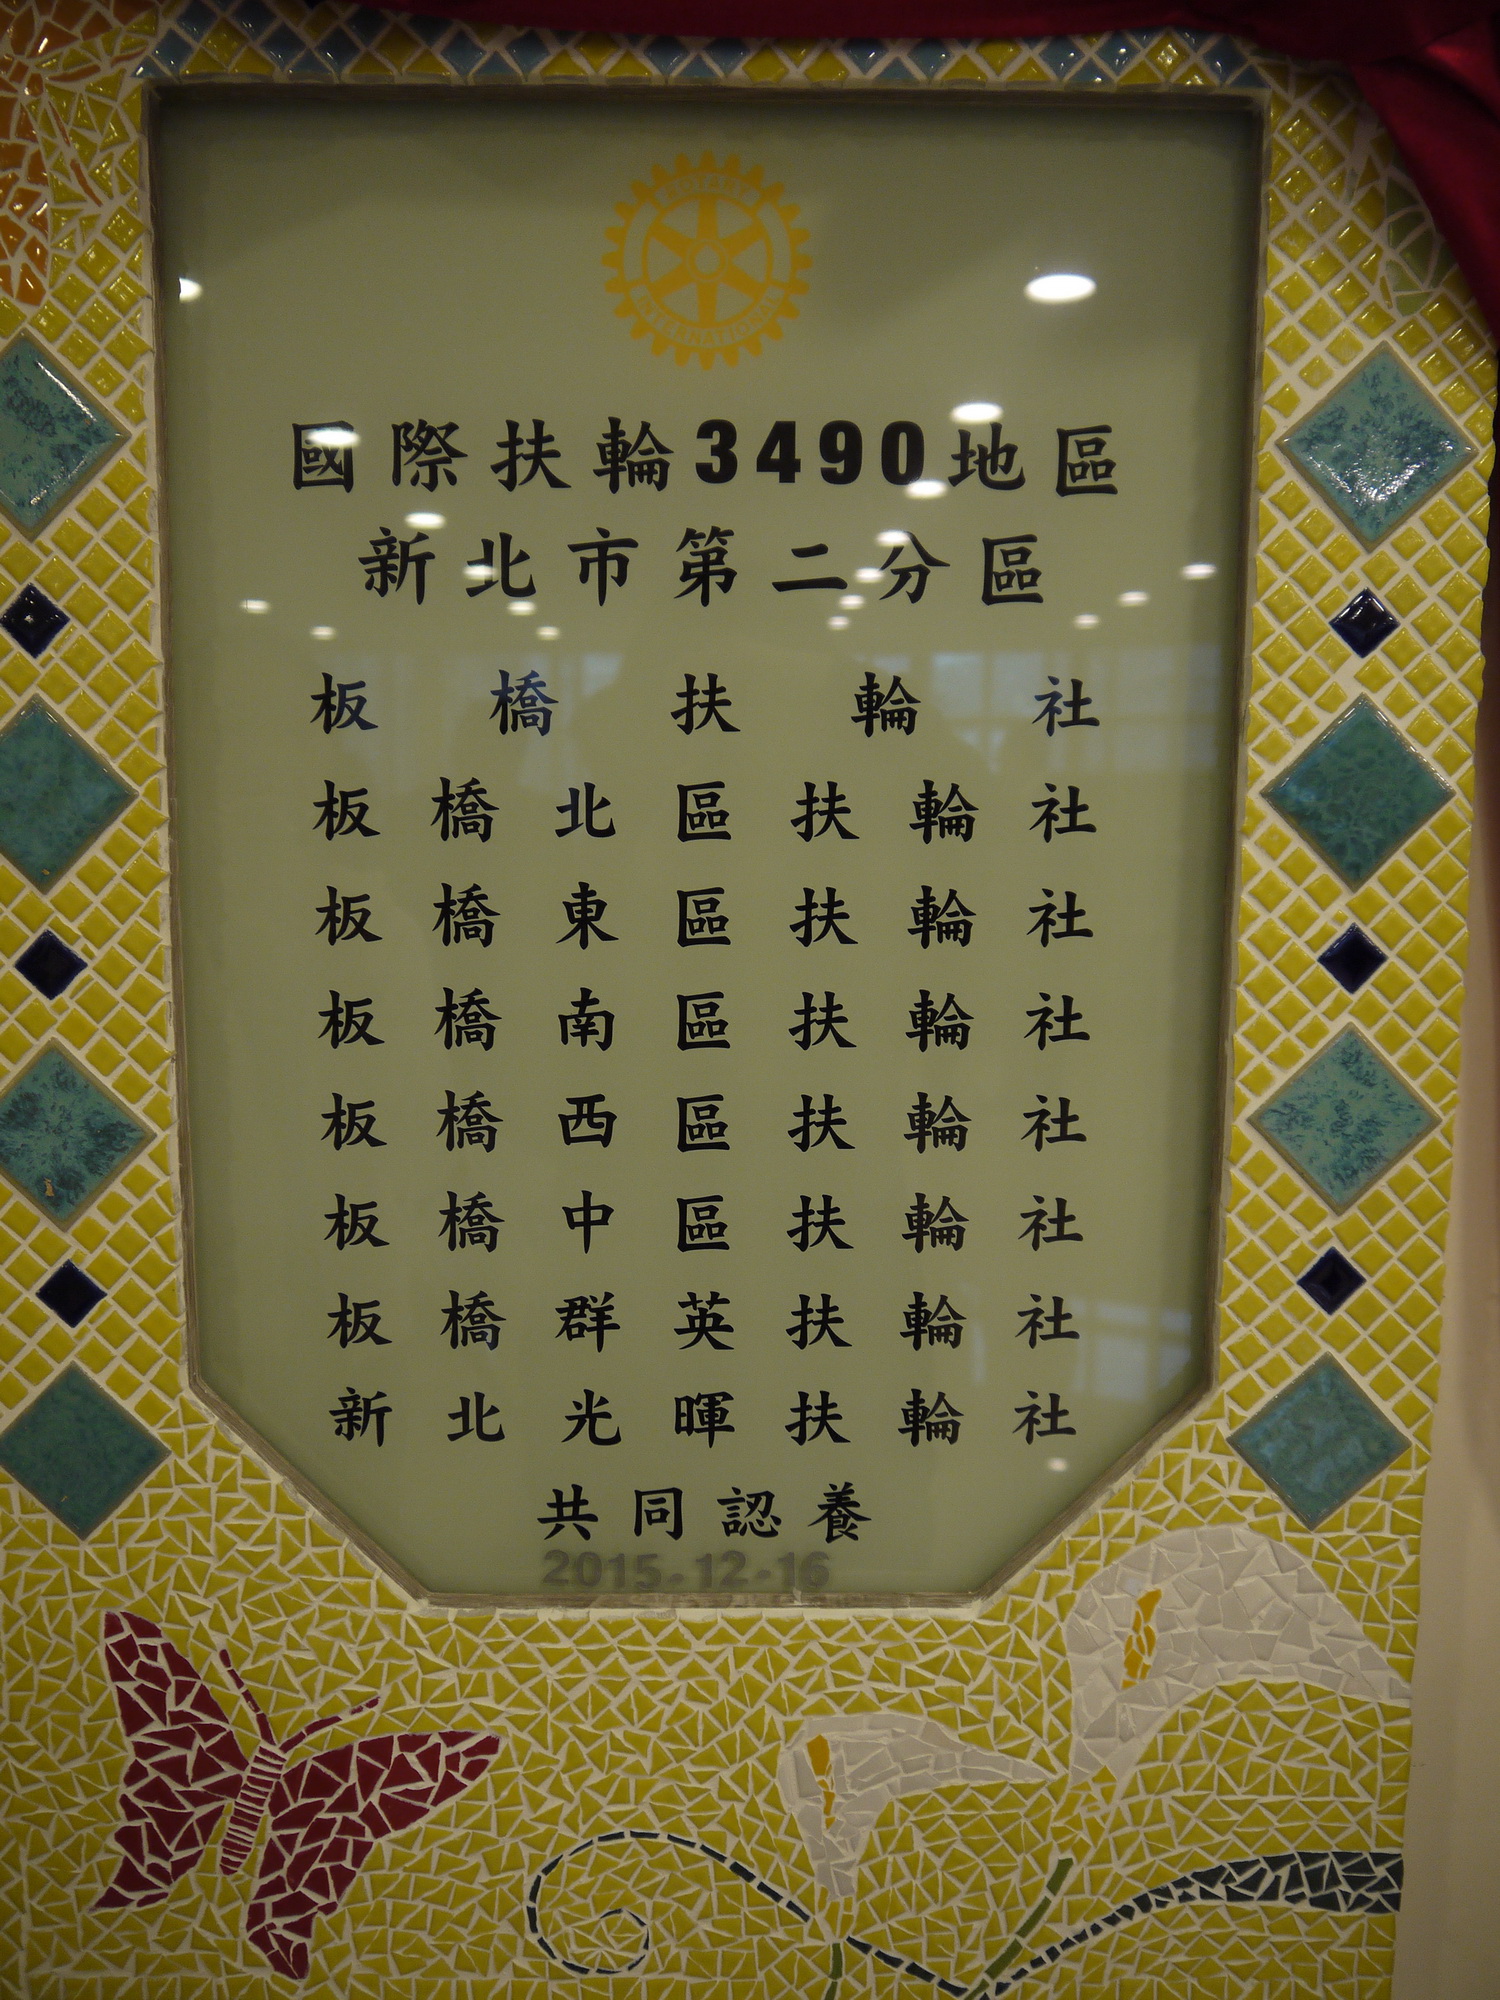 ROTARY
INTERNATIONAL
國際扶輪3490地區
新北市第二分區
板橋扶輪社
板橋北區扶輪社
板橋東區扶輪社
板橋南區扶輪社
板橋西區扶輪社
板橋中區扶輪社
板橋群英扶輪社
新北光暉扶輪社
共同認養
2015-12-16